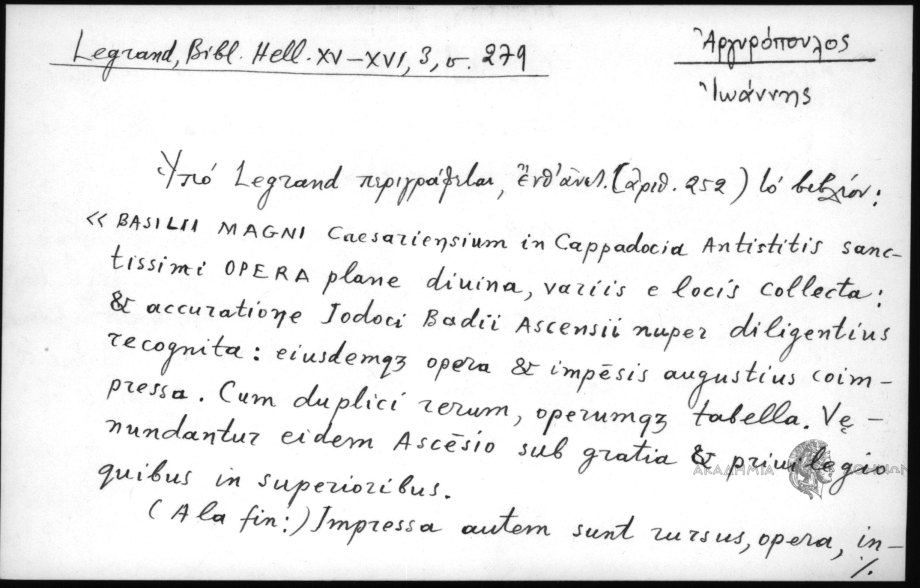 Legrand, Bibl. Hell. XV-XVI, 3, σ. 279
Ἀργυρόπουλος
Ἰωάννης
Ὑπό Legrand περιγράφεται, ἔνθ' ἀνωτ. (ἀριθ. 252) τό βιβλίον:
«BASILII MAGNI Caesariensium in Cappadocia Antistitis sanc-
tissimi OPERA plane diuina, variis e locis collecta:
& accuratione Iodoci Badii Ascensii nuper diligentius
recognita: eiusdemqꝫ opera & impēsis augustius coim-
pressa. Cum duplici rerum, operumqꝫ tabella. Vę-
nundantur eidem Ascēsio sub gratia & priuilegio
quibus in superioribus.
(A la fin:) Impressa autem sunt rursus, opera, in-
./.
ΑΚΑΔΗΜΙΑ ΑΘΗΝΩΝ